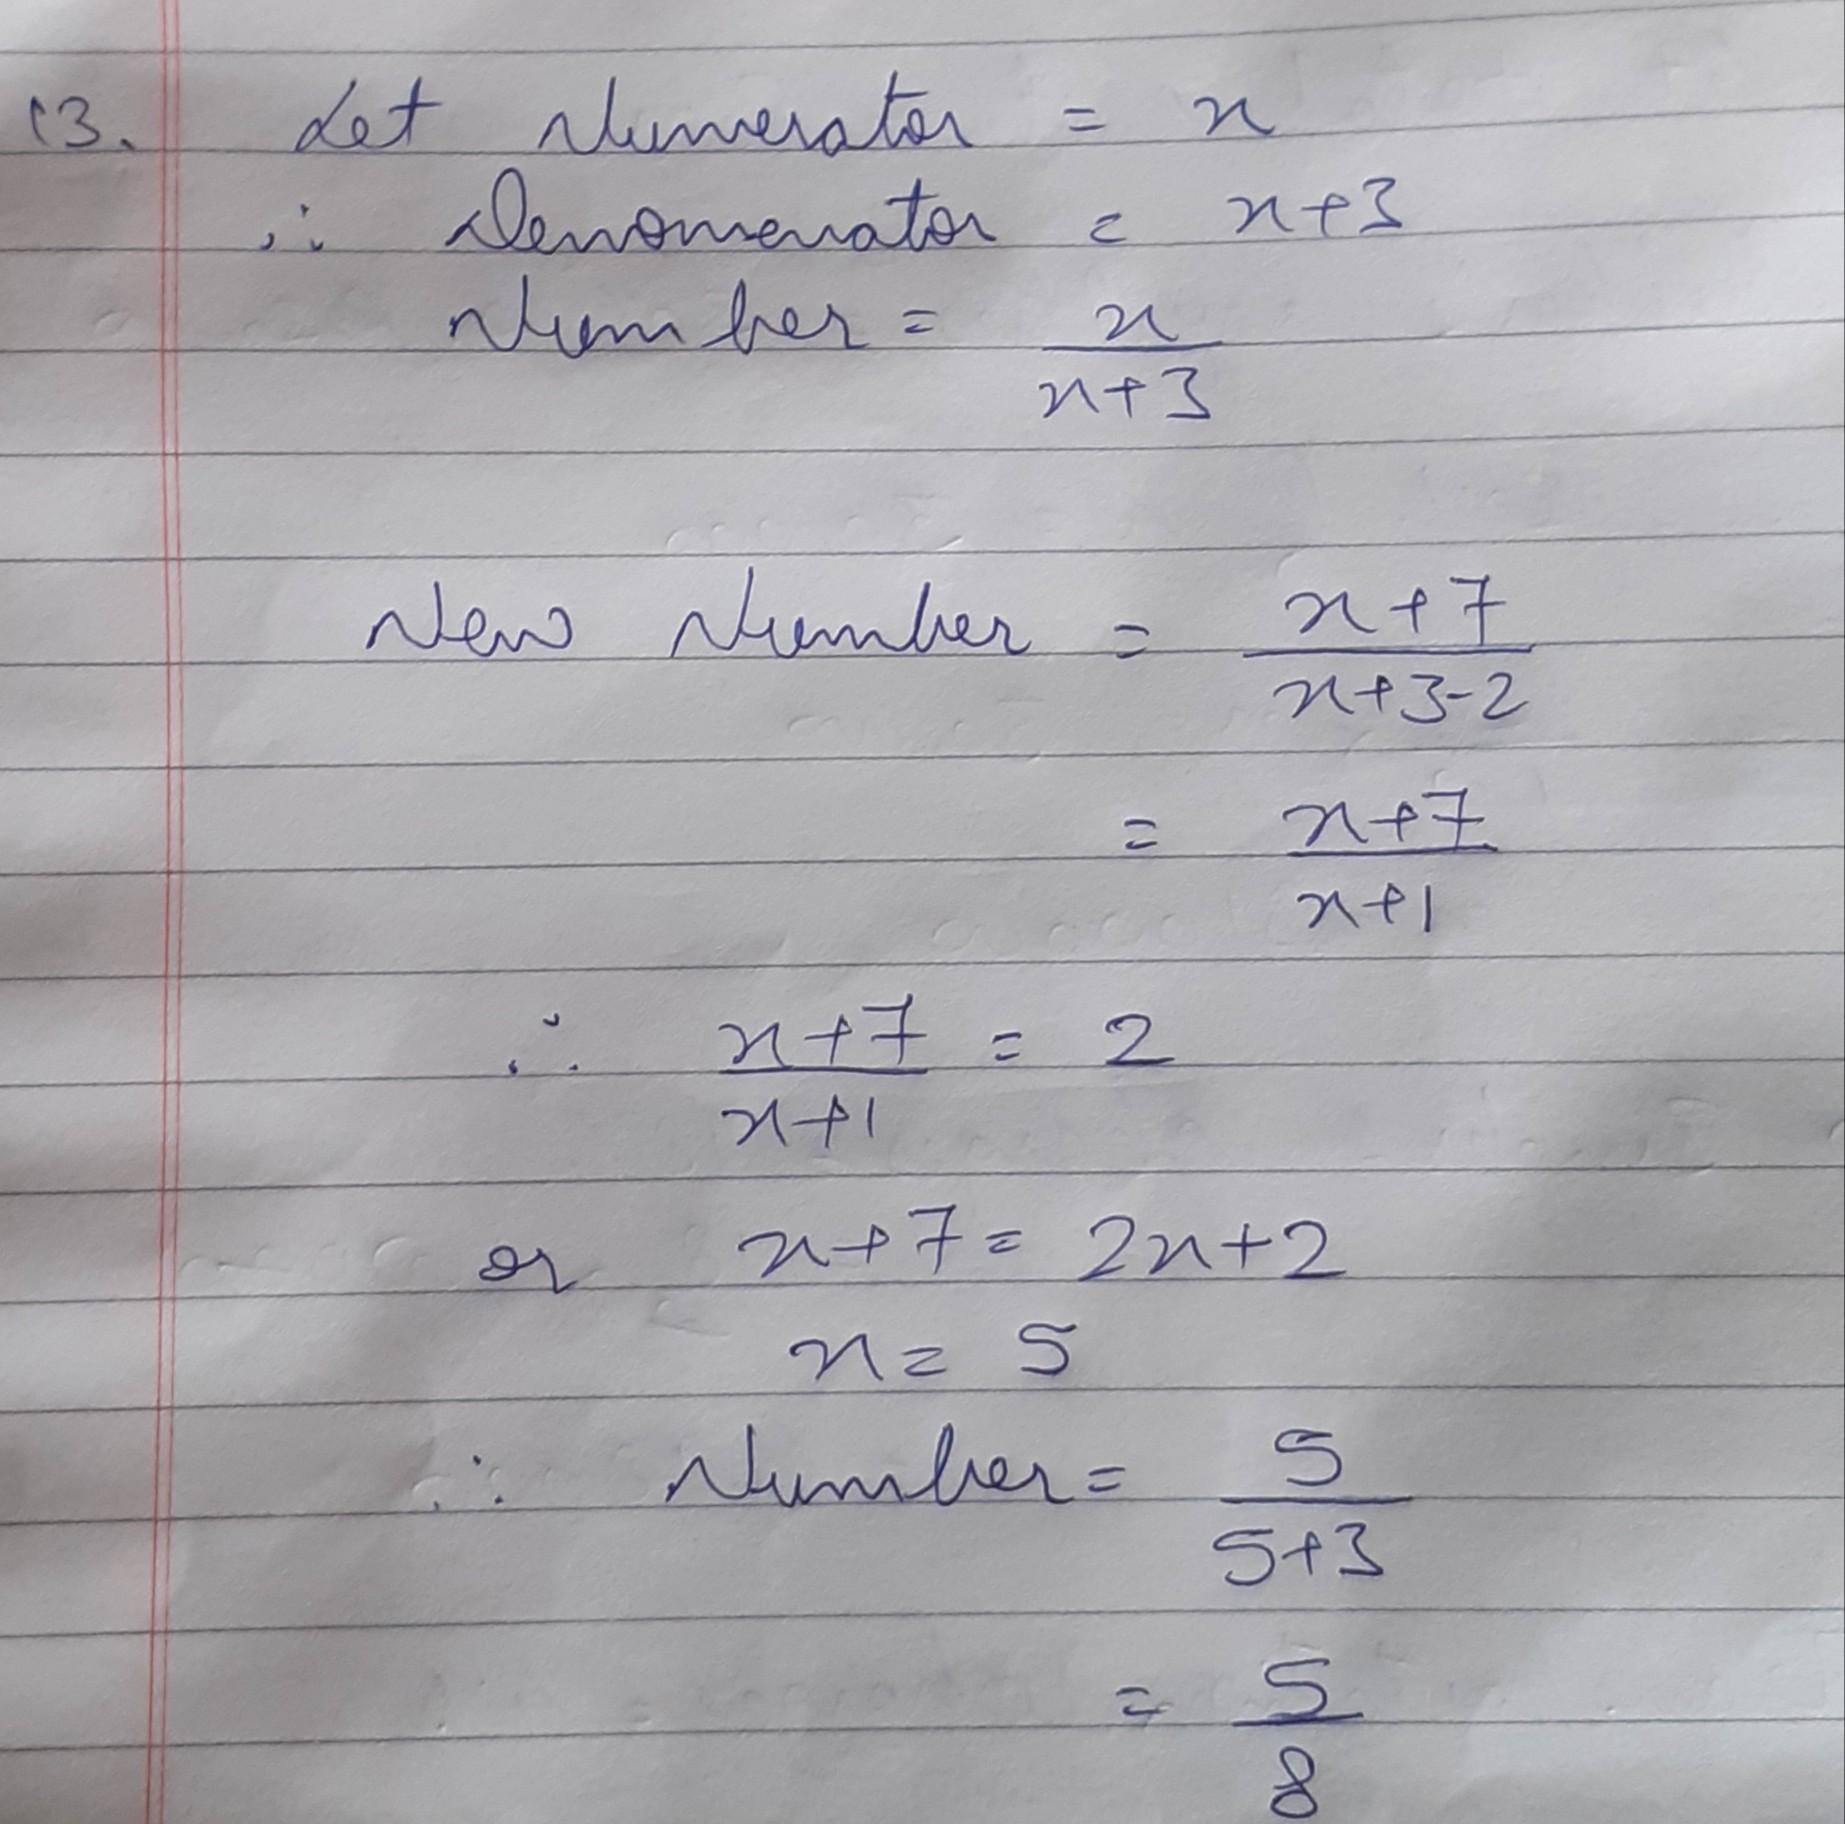 13. Let Numerator = x
∴ Denomenator = x+3
Number = x
x+3
New Number = x+7
x+3-2
= x+7
x+1
∴ x+7 = 2
x+1
or x+7 = 2x+2
x = 5
∴ Number = 5
5+3
= 5
8